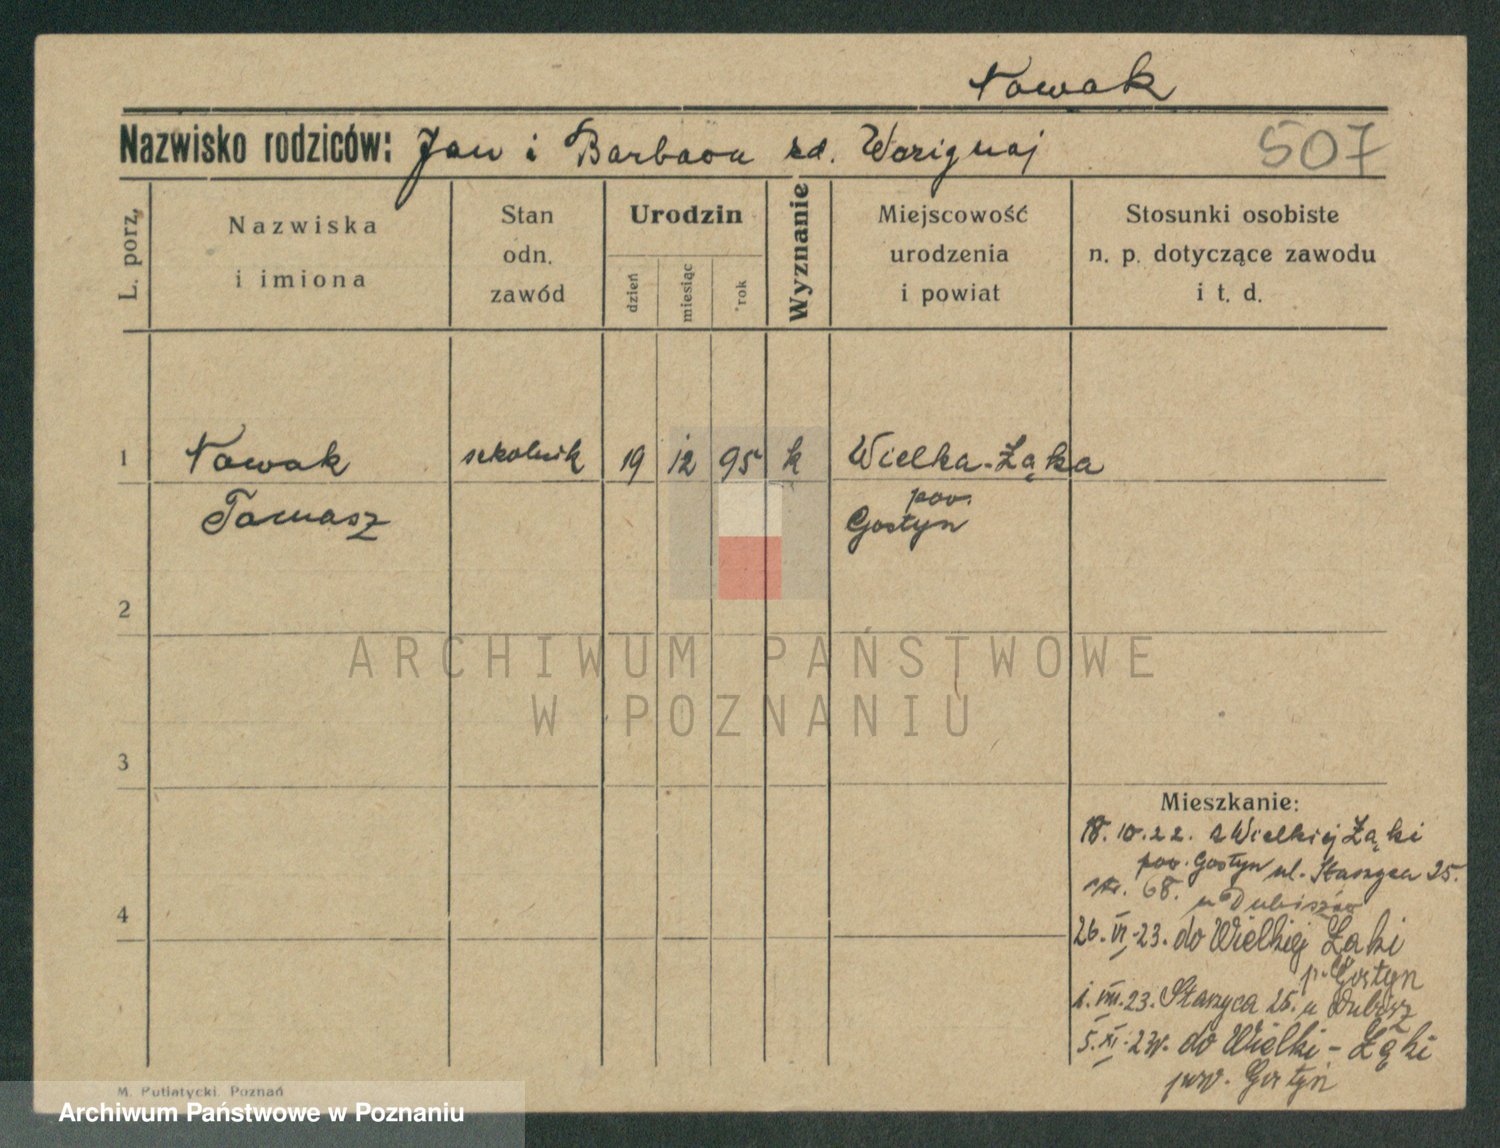 Nowak
Nazwisko rodziców: Jan i Barbara zd.
507
L. porz.
Nazwiska
i imiona
Stan
odn.
zawód
Urodzin
dzień
miesiąc
rok
Wyznanie
Miejscowość
urodzenia
i powiat
Stosunki osobiste
n. p. dotyczące zawodu
i t. d.
1 Nowak szkolnik 19 12 95 k Wielka-Łąka
Tomasz pow.
Gostyn
2
ARCHIWUM PAŃSTWOWE
W POZNANIU
3
Mieszkanie:
18.10.22. z Wielkiej Łąki
pow. Gostyn ul. Staszyca 25.
str. 68. u
4
26.VI.23. do Wielkiej Łąki
p. Gostyn
1.VIII.23. Staszyca 25. u
5.XI.23r. do Wielki-Łąki
pow. Gostyń
M. Putiatycki. Poznań
Archiwum Państwowe w Poznaniu